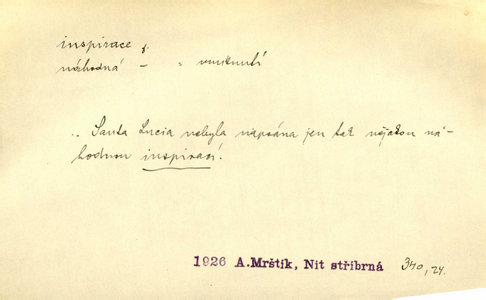 inspirace f.
náhodná – „ vnuknutí
.. Santa Lucia nebyla napsána jen tak nějakou ná-
hodnou inspirací.
1926 A.Mrštík, Nit stříbrná 340,24.